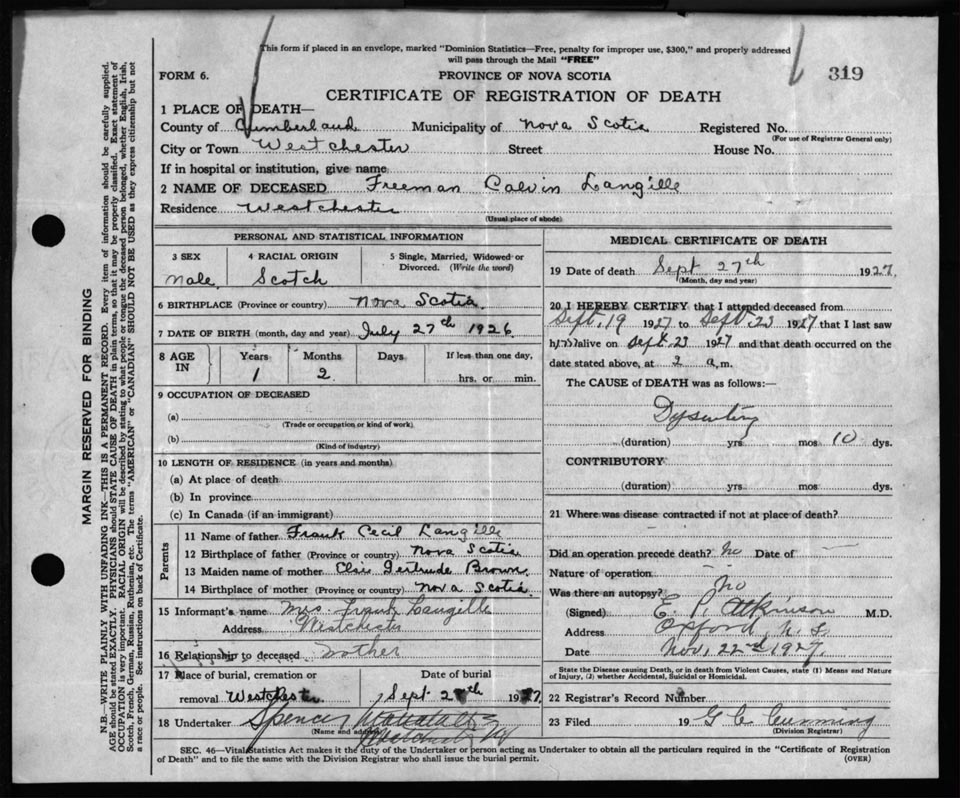 This form if placed in an envelope, marked "Dominion Statistics—Free, penalty for improper use, $300," and properly addressed
will pass through the Mail "FREE"
FORM 6. PROVINCE OF NOVA SCOTIA 319
CERTIFICATE OF REGISTRATION OF DEATH
1 PLACE OF DEATH—
County of Cumberland Municipality of Nova Scotia Registered No.
(For use of Registrar General only)
City or Town Westchester Street House No.
If in hospital or institution, give name
2 NAME OF DECEASED Freeman Calvin Langille
Residence Westchester
(Usual place of abode)
PERSONAL AND STATISTICAL INFORMATION
3 SEX 4 RACIAL ORIGIN 5 Single, Married, Widowed or
Divorced. (Write the word)
Male. Scotch
6 BIRTHPLACE (Province or country) Nova Scotia.
7 DATE OF BIRTH (month, day and year) July 27th 1926
8 AGE IN Years Months Days If less than one day,
1 2 hrs. or min.
9 OCCUPATION OF DECEASED
(a)
(Trade or occupation or kind of work)
(b)
(Kind of industry)
10 LENGTH OF RESIDENCE (in years and months)
(a) At place of death
(b) In province
(c) In Canada (if an immigrant)
Parents
11 Name of father Frank Cecil Langille
12 Birthplace of father (Province or country) Nova Scotia
13 Maiden name of mother Elsie Gertrude Brown
14 Birthplace of mother (Province or country) Nova Scotia
15 Informant's name Mrs. Frank Langille
Address Westchester
16 Relationship to deceased Mother
17 Place of burial, cremation or Date of burial
removal Westchester Sept 27th 1927
18 Undertaker Spencer
(Name and address)
MEDICAL CERTIFICATE OF DEATH
19 Date of death Sept 27th 1927.
(Month, day and year)
20 I HEREBY CERTIFY that I attended deceased from
Sept. 19 1927 to Sept. 23 1927 that I last saw
him alive on Sept. 23 1927 and that death occurred on the
date stated above, at 2 a.m.
The CAUSE of DEATH was as follows:—
Dysentery
(duration) yrs mos 10 dys.
CONTRIBUTORY
(duration) yrs. mos. dys.
21 Where was disease contracted if not at place of death?
Did an operation precede death? No Date of —
Nature of operation
Was there an autopsy? No
(Signed) E. P. Atkinson M.D.
Address Oxford, N.S.
Date Nov. 22nd 1927.
State the Disease causing Death, or in death from Violent Causes, state (1) Means and Nature
of Injury, (1) whether Accidental, Suicidal or Homicidal.
22 Registrar's Record Number
23 Filed 19 G C Cumming
(Division Registrar)
SEC. 46—Vital Statistics Act makes it the duty of the Undertaker or person acting as Undertaker to obtain all the particulars required in the "Certificate of Registration
of Death" and to file the same with the Division Registrar who shall issue the burial permit. (OVER)
MARGIN RESERVED FOR BINDING
N.B.—WRITE PLAINLY WITH UNFADING INK—THIS IS A PERMANENT RECORD. Every item of information should be carefully supplied.
AGE should be stated EXACTLY. PHYSICIANS should STATE CAUSE OF DEATH in plain terms, so that it may be properly classified. Exact statement of
OCCUPATION is very important. RACIAL ORIGIN will be described by stating to what people or tongue the deceased person belonged, whether English, Irish,
Scotch, French, German, Russian, Ruthenian, etc. The terms "AMERICAN" or "CANADIAN" SHOULD NOT BE USED as they express citizenship but not
a race or people. See instructions on back of Certificate.